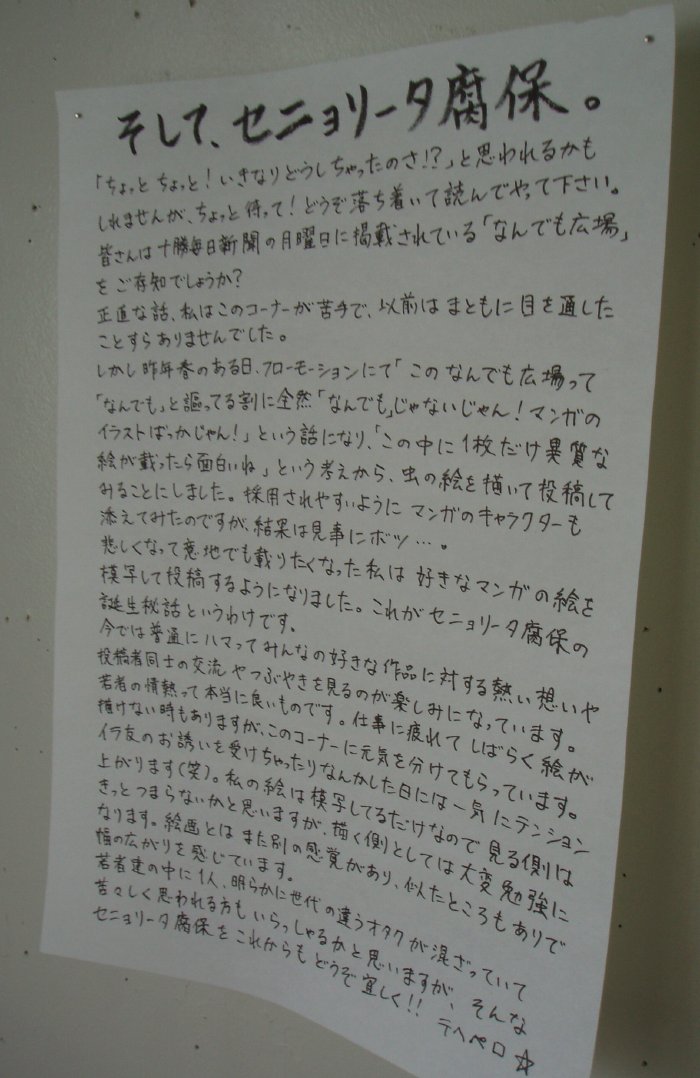 そして、セニョリータ腐保。
「ちょっと ちょっと！いきなりどうしちゃったのさ!?」と思われるかも
しれませんが、ちょっと待って！どうぞ落ち着いて読んでやって下さい。
皆さんは十勝毎日新聞の月曜日に掲載されている「なんでも広場」
をご存知でしょうか？
正直な話、私はこのコーナーが苦手で、以前はまともに目を通した
ことすらありませんでした。
しかし昨年春のある日、フローモーションにて「このなんでも広場って
「なんでも」と謳ってる割に全然「なんでも」じゃないじゃん！マンガの
イラストばっかじゃん！」という話になり、「この中に1枚だけ異質な
絵が載ったら面白いね」という考えから、虫の絵を描いて投稿して
みることにしました。採用されやすいようにマンガのキャラクターも
添えてみたのですが、結果は見事にボツ…。
悲しくなって意地でも載りたくなった私は好きなマンガの絵を
模写して投稿するようになりました。これがセニョリータ腐保の
誕生秘話というわけです。
今では普通にハマってみんなの好きな作品に対する熱い想いや
投稿者同士の交流やつぶやきを見るのが楽しみになっています。
若者の情熱って本当に良いものです。仕事に疲れてしばらく絵が
描けない時もありますが、このコーナーに元気を分けてもらっています。
イラ友のお誘いを受けちゃったりなんかした日には一気にテンション
上がります(笑)。私の絵は模写してるだけなので見る側は
きっとつまらないかと思いますが、描く側としては大変勉強に
なります。絵画とはまた別の感覚があり、似たところもありで
幅の広がりを感じています。
若者達の中に1人、明らかに世代の違うオタクが混ざっていて
苦々しく思われる方もいらっしゃるかと思いますが、そんな
セニョリータ腐保をこれからもどうぞ宜しく!! テヘペロ☆